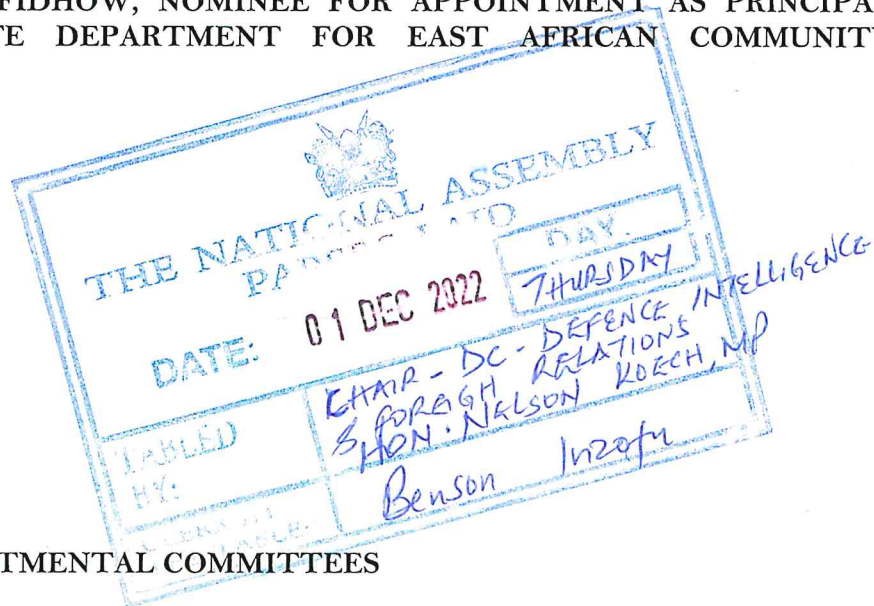 FIDHOW, NOMINEE FOR APPOINTMENT AS PRINCIPA
TE DEPARTMENT FOR EAST AFRICAN COMMUNIT
THE NATIONAL ASSEMBLY
PAPERS LAID
DATE: 01 DEC 2022
DAY.
THURSDAY
TABLED
BY:
CHAIR - DC - DEFENCE INTELLIGENCE
& FOREIGH RELATIONS
HON. NELSON KOECH, MP
CLERK AT
TABLE:
Benson Inzofu
TMENTAL COMMITTEES